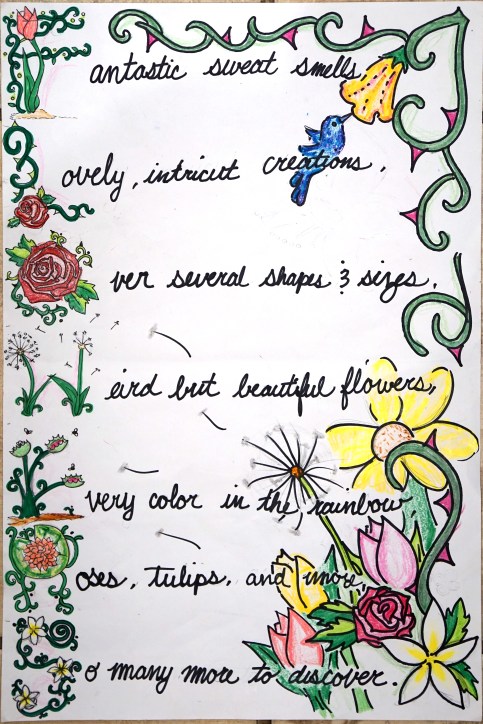 Fantastic sweat smells,
Lovely, intricut creations,
Over several shapes & sizes,
Weird but beautiful flowers,
Every color in the rainbow,
Roses, tulips, and more,
So many more to discover.